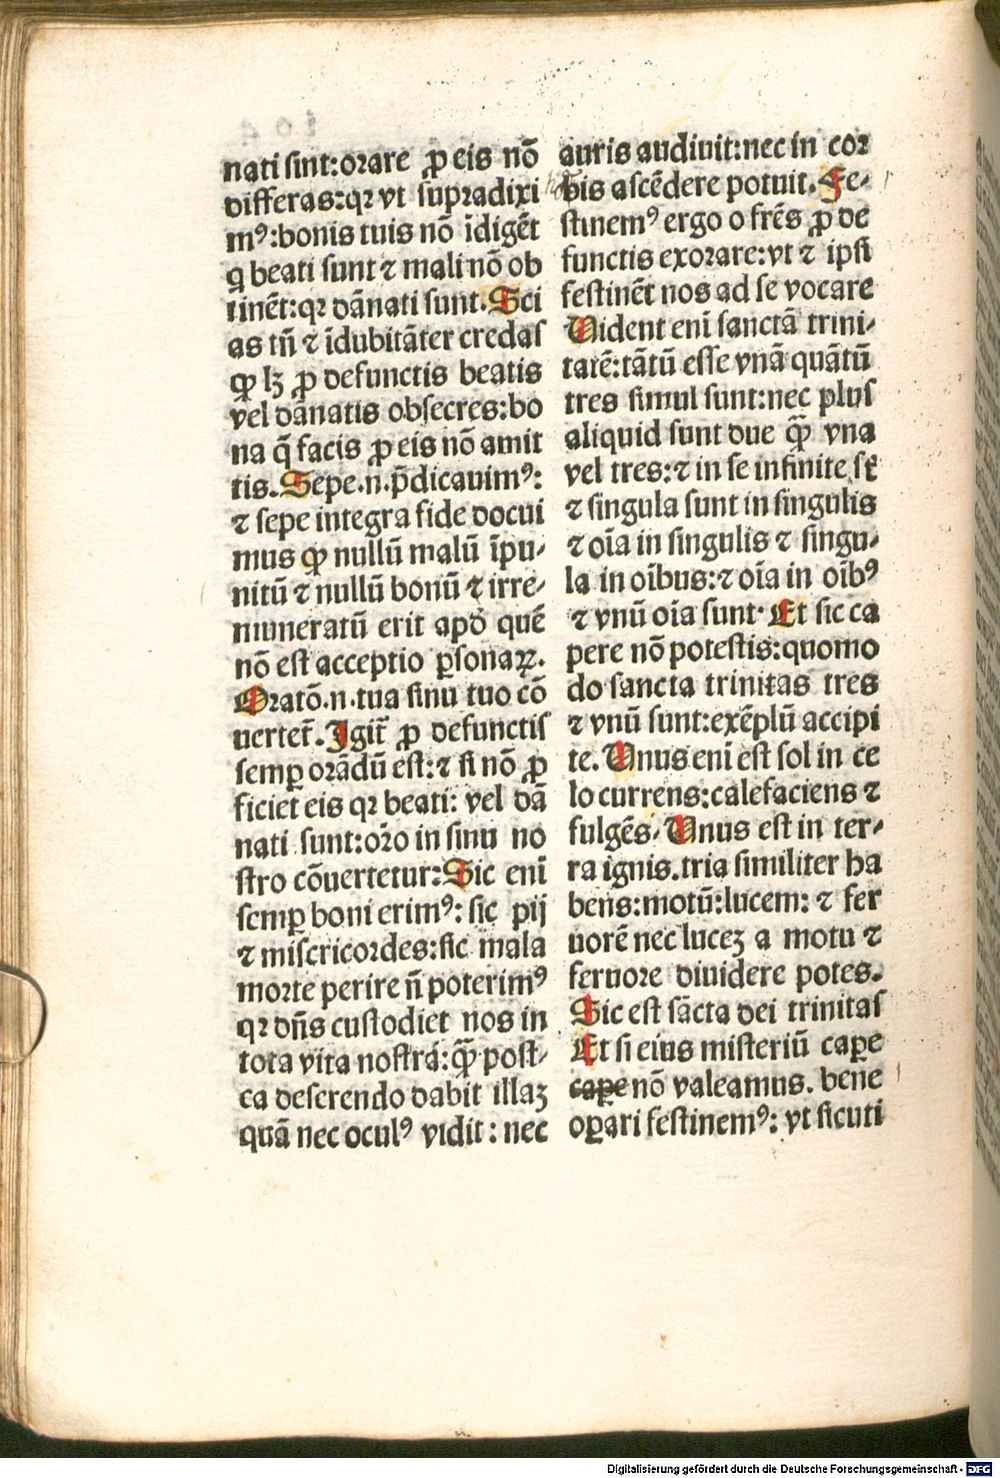 nati sint:orare ꝓ eis nō
differas:qꝛ vt supradixi
mꝰ:bonis tuis nō īdigēt
q beati sunt ⁊ mali nō ob
tinēt:qꝛ dānati sunt.Sci
as tñ ⁊ īdubitāter credas
ꝙ lꝫ ꝓ defunctis beatis
vel dānatis obsecres:bo
na q̄ facis ꝓ eis nō amit
tis.Sepe.n.p̄dicauimꝰ:
⁊ sepe integra fide docui
mus ꝙ nullū malū īpu-
nitū ⁊ nullū bonū ⁊ irre-
muneratū erit apď quē
nō est acceptio ꝑsonaꝝ.
Oratō.n.tua sinu tuo cō
uertet̄.Igit̄ ꝓ defunctis
semꝑ orādū est:⁊ si nō ꝓ
ficiet eis qꝛ beati: vel dā
nati sunt:oro in sinu no
stro cōuertetur:Sic enī
semꝑ boni erimꝰ: sic pij
⁊ misericordes:sic mala
morte perire ñ poterimꝰ
qꝛ dn̄s custodiet nos in
tota vita nostra:ꝙ̄ post-
ea deserendo dabit illaꝫ
quā nec oculꝰ vidit: nec
auris audiuit:nec in cor
bis ascēdere potuit.Fe-
stinemꝰ ergo o frēs ꝓ de
functis exorare:vt ⁊ ipsi
festinēt nos ad se vocare
Uident enī sanctā trini-
tatē:tātū esse vnā quātū
tres simul sunt:nec plus
aliquid sunt due ꝙ̄ vna
vel tres:⁊ in se infinite st̄
⁊ singula sunt in singulis
⁊ oīa in singulis ⁊ singu-
la in oībus:⁊ oīa in oībꝰ
⁊ vnū oīa sunt. Et sic ca
pere nō potestis:quomo
do sancta trinitas tres
⁊ vnū sunt:exēplū accipi
te. Unus enī est sol in ce
lo currens:calefaciens ⁊
fulgēs. Unus est in ter-
ra ignis.tria similiter ha
bens:motū:lucem: ⁊ fer
uorē nec luceꝫ a motu ⁊
feruore diuidere potes.
Sic est sācta dei trinitas
Et si eius misteriū capere
capere nō valeamus. bene
oꝑari festinemꝰ: vt sicuti
Digitalisierung gefördert durch die Deutsche Forschungsgemeinschaft - DFG